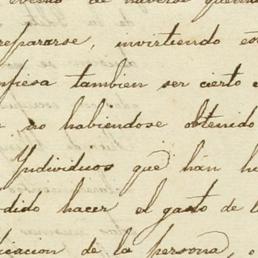 de haverse
repararse, invirtiendo es
nfiesa tambien ser cierto e
no habiendose obtenido
Yndividuos que hán h
dido hacer el gasto de l
icacion de la persona, o